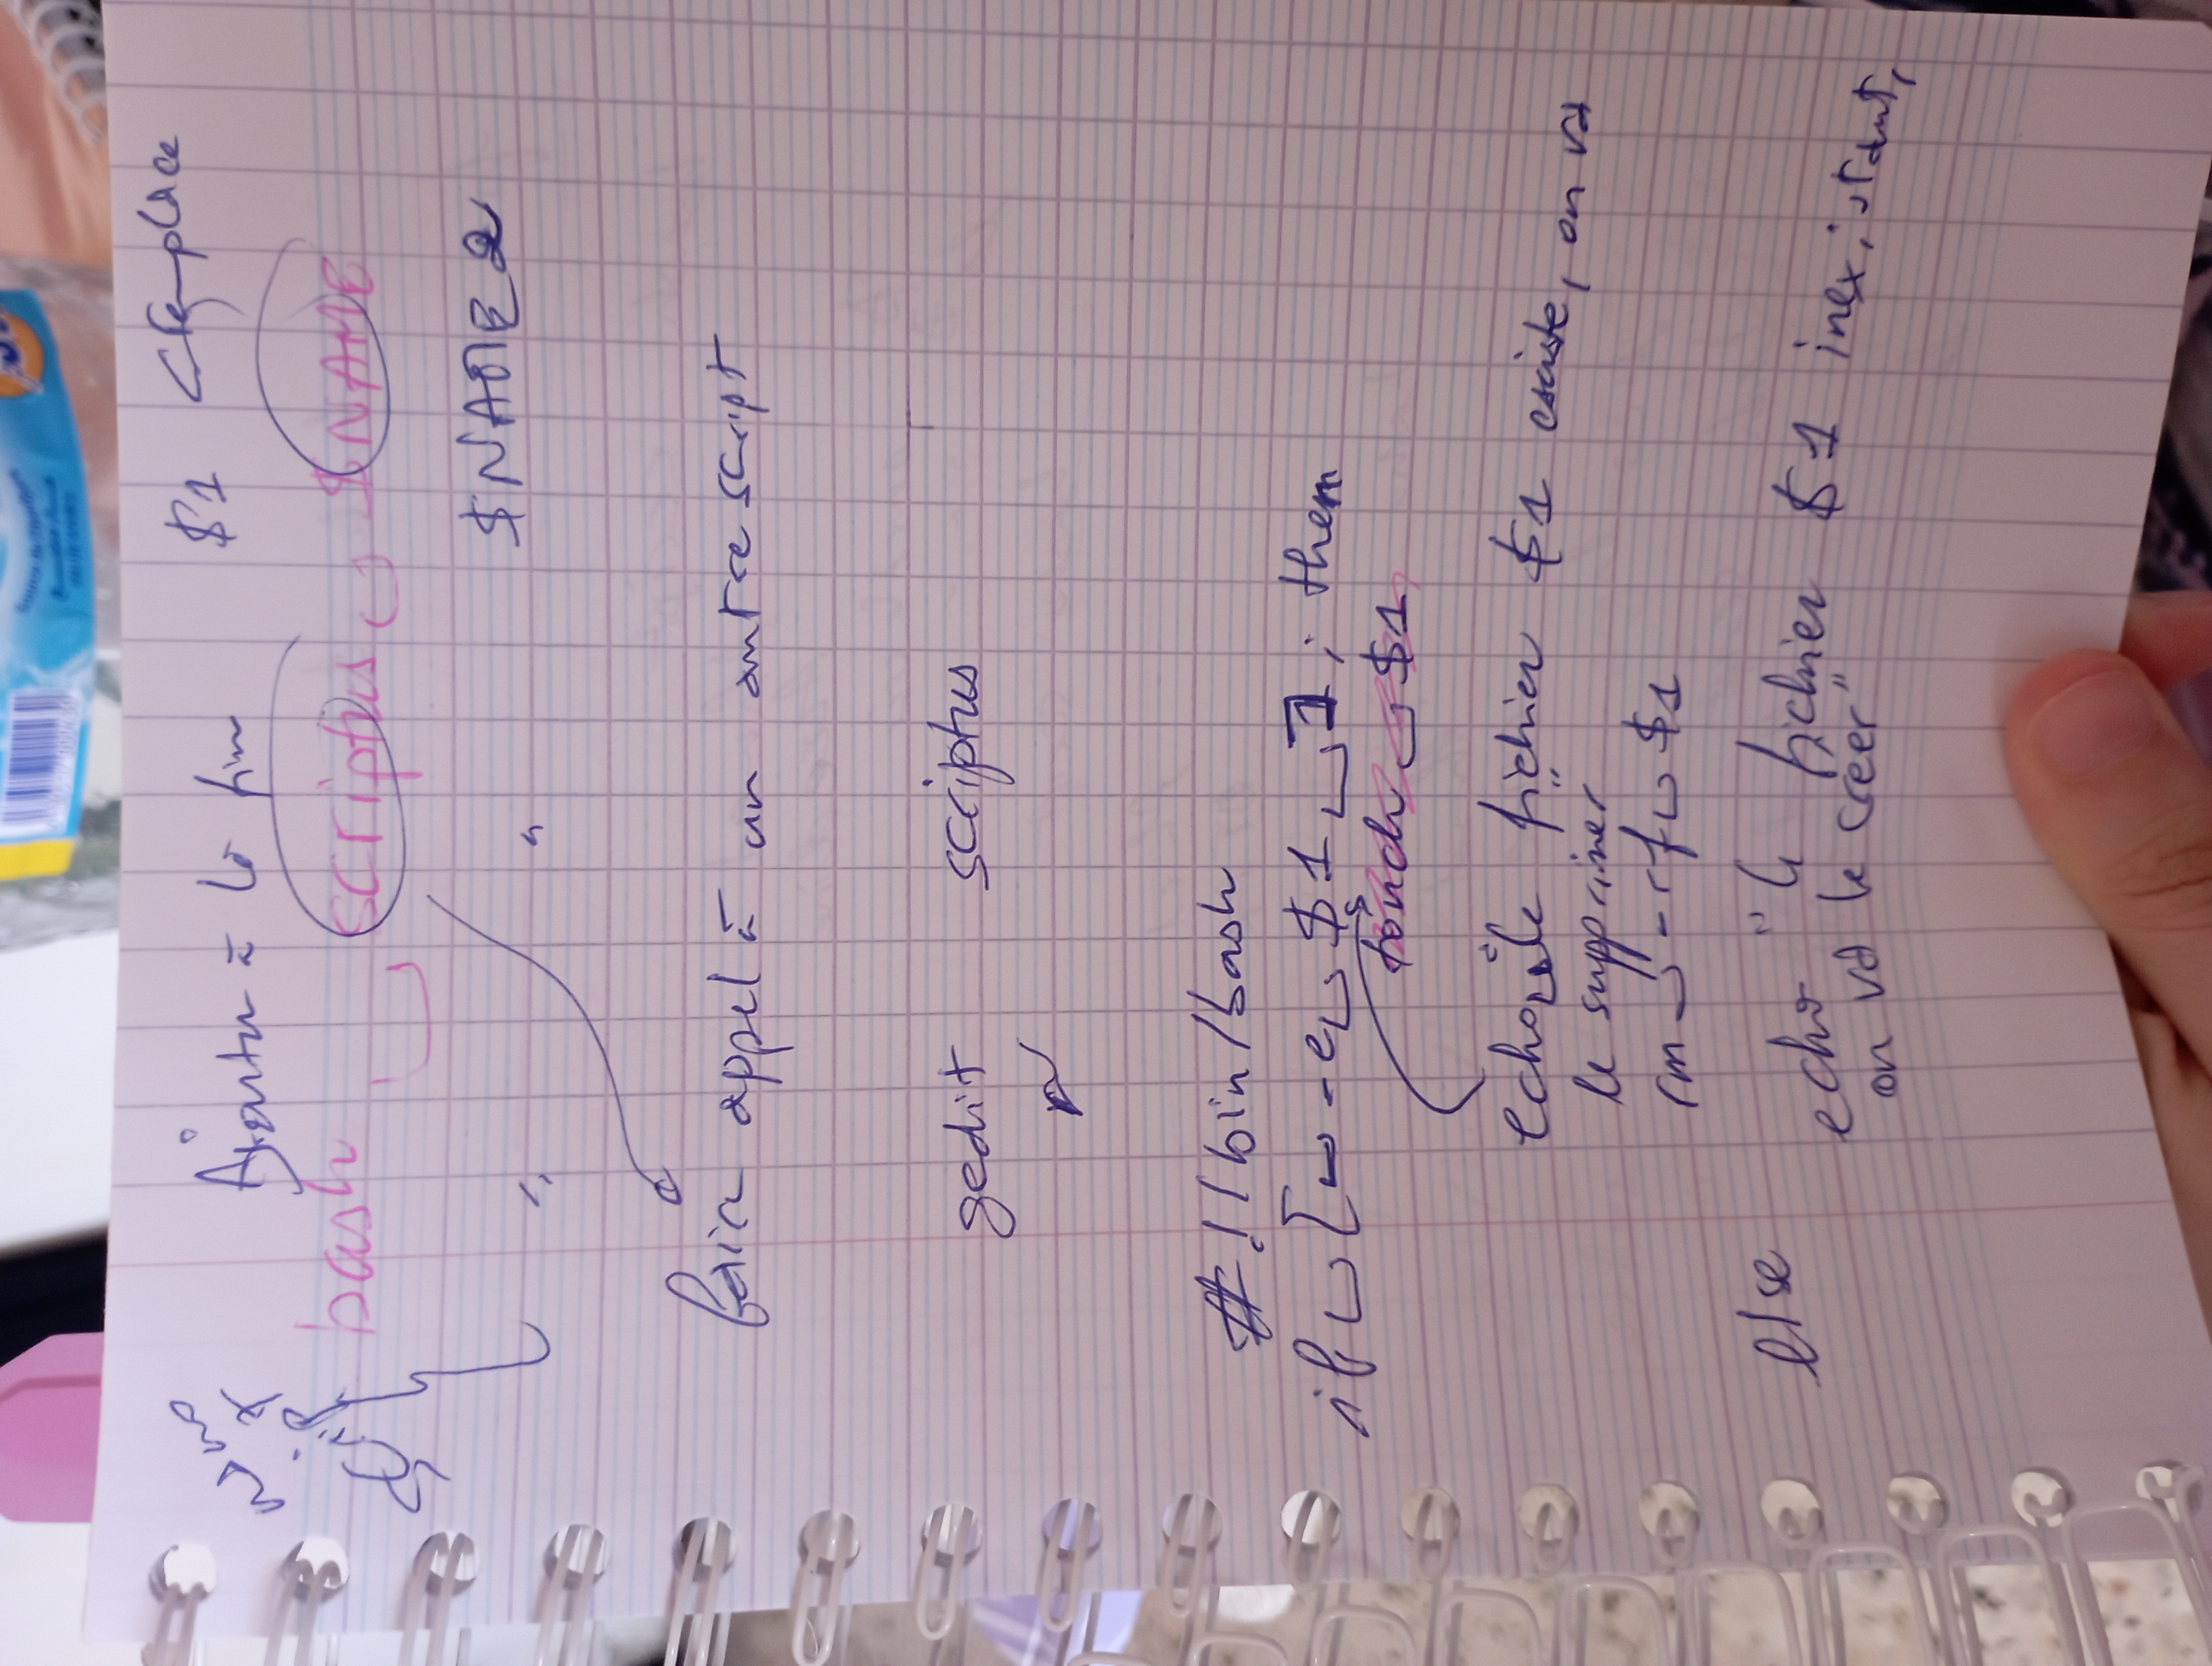 $1 remplace
Ajouter à la fin
nano
script
bash scriptus $NAME
" " $NAME2
faire appel à un autre script
gedit scriptus
#!/bin/bash
if [ -e $1 ] ; then
touch $1
echo "le fichier $1 existe, on va
le supprimer"
rm -rf $1
else
echo "le fichier $1 inexistant,
on va le créer"